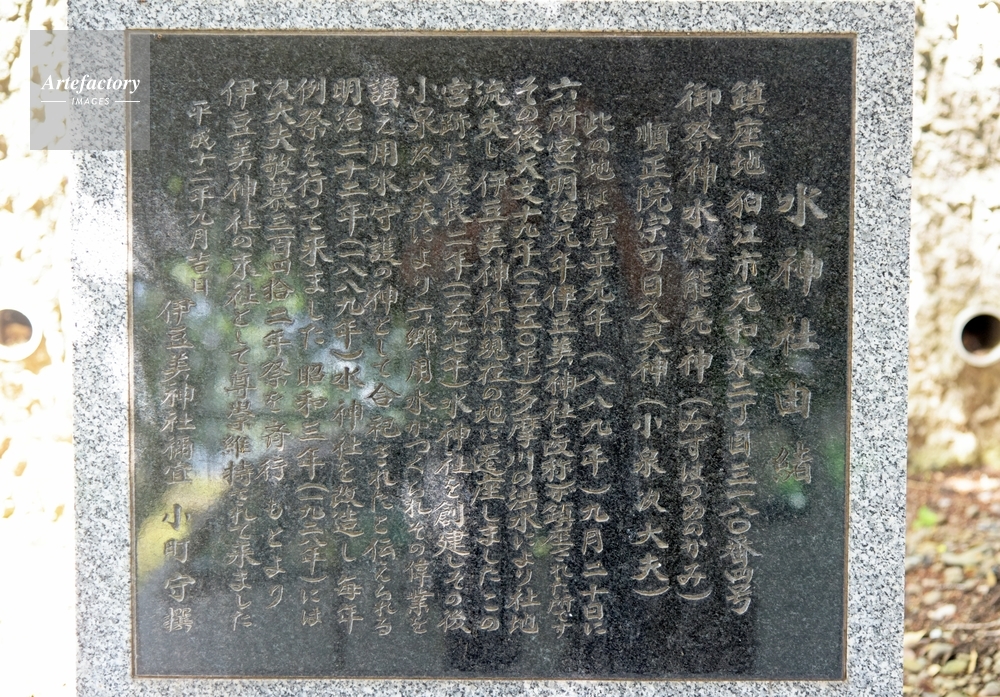 水神社由緒
鎮座地 狛江市元和泉二丁目三一六番四号
御祭神 水波能売神(みずはのめのかみ)
順正院宗可日久霊神(小泉次大夫)
此の地は寛平元年(八八九年)九月二十日に
六所宮(明治元年伊豆美神社と改称)が鎮座された所です
その後天文十九年(一五五〇年)多摩川の洪水により社地
流失し伊豆美神社は現在の地に遷座しましたこの
宮跡に慶長二年(一五九七年)水神社を創建しその後
小泉次大夫により六郷用水がつくられその偉業を
讃え用水守護の神として合祀されたと伝えられる
明治二十二年(一八八九年)水神社を改造し毎年
例祭を行って来ました 昭和三年(一九二八年)には
次大夫敬慕三百拾二年祭を斎行 もとより
伊豆美神社の末社として尊崇維持され来ました
平成十二年九月吉日
伊豆美神社禰宜 小町守撰
Artefactory
IMAGES